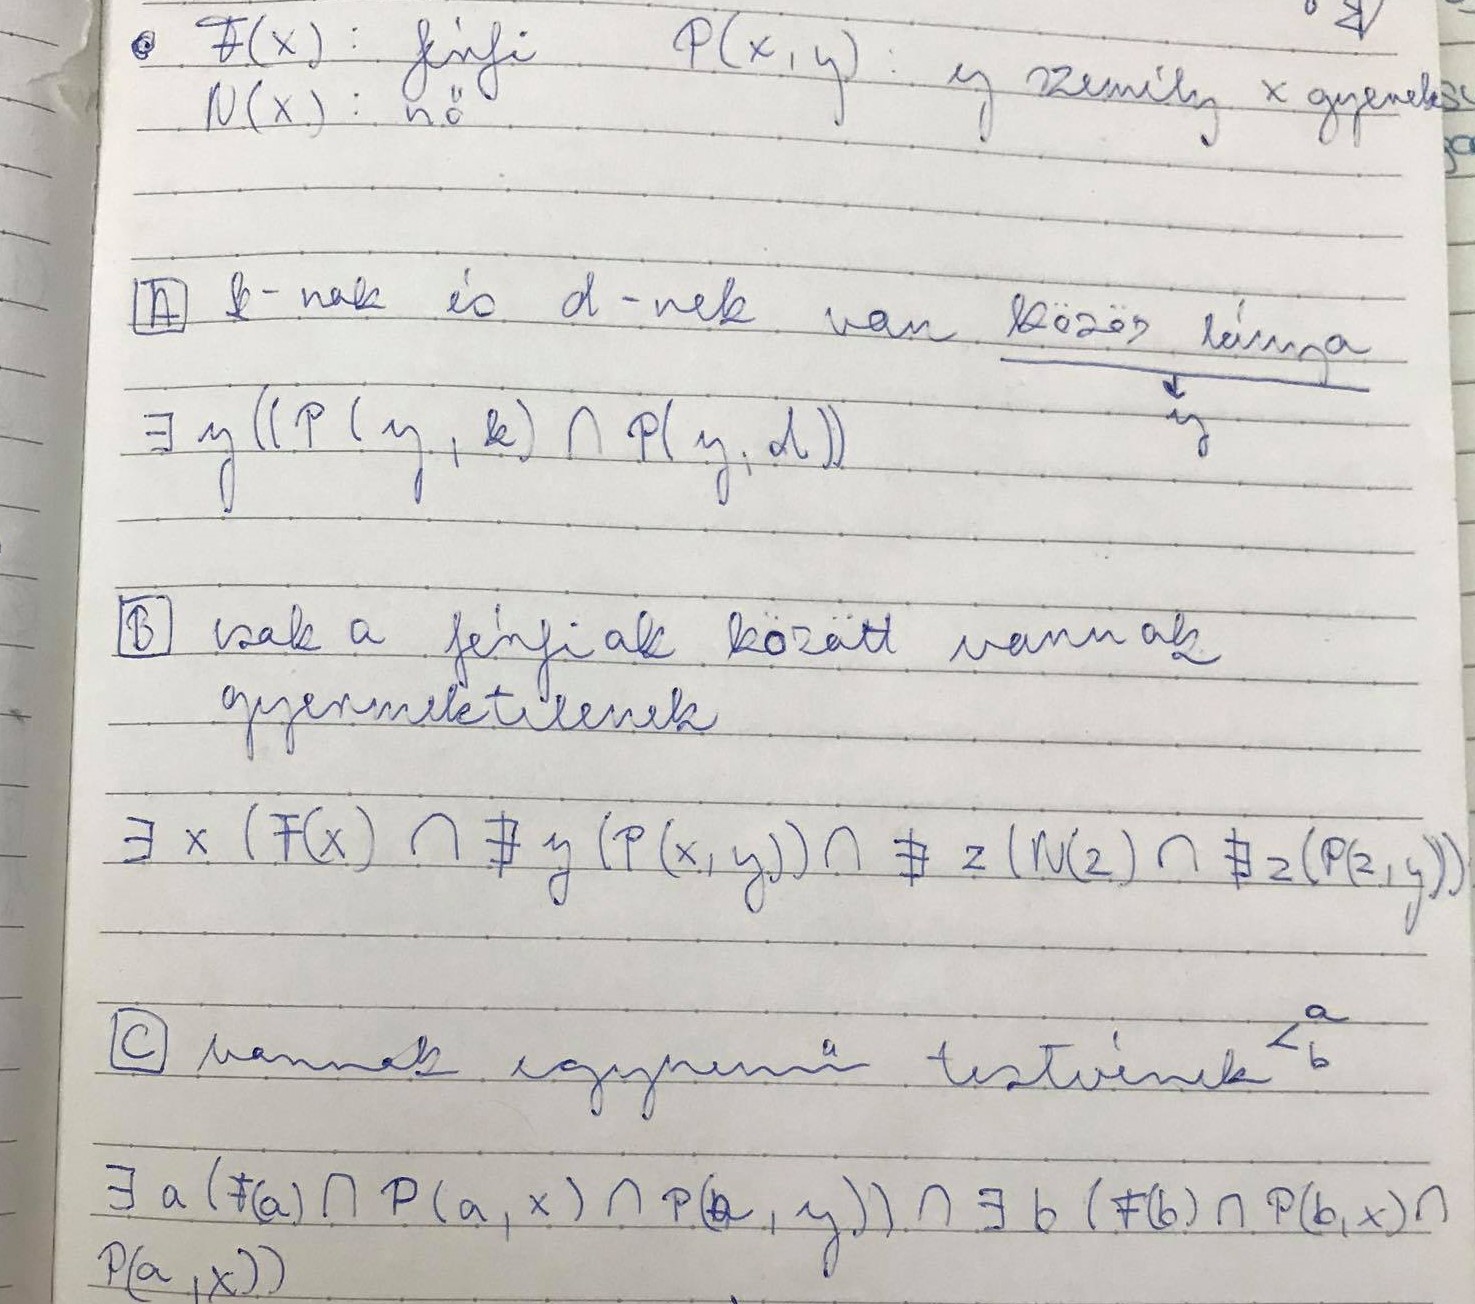 F(x): férfi P(x,y): y személy x gyereke
N(x): nő
A k-nak és d-nek van közös lánya
y
∃y((P(y,k) ∩ P(y,d))
B csak a férfiak között vannak
gyermektelenek
∃x (F(x) ∩ ∄y (P(x,y)) ∩ ∄z (N(z) ∩ ∄z(P(z,y))
C vannak egynemű testvérek < a b
∃a (F(a) ∩ P(a,x) ∩ P(a,y)) ∩ ∃b (F(b) ∩ P(b,x) ∩
P(a,x))